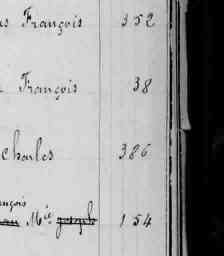 François 352
François 38
Charles 386
nçois
Mie joseph 154